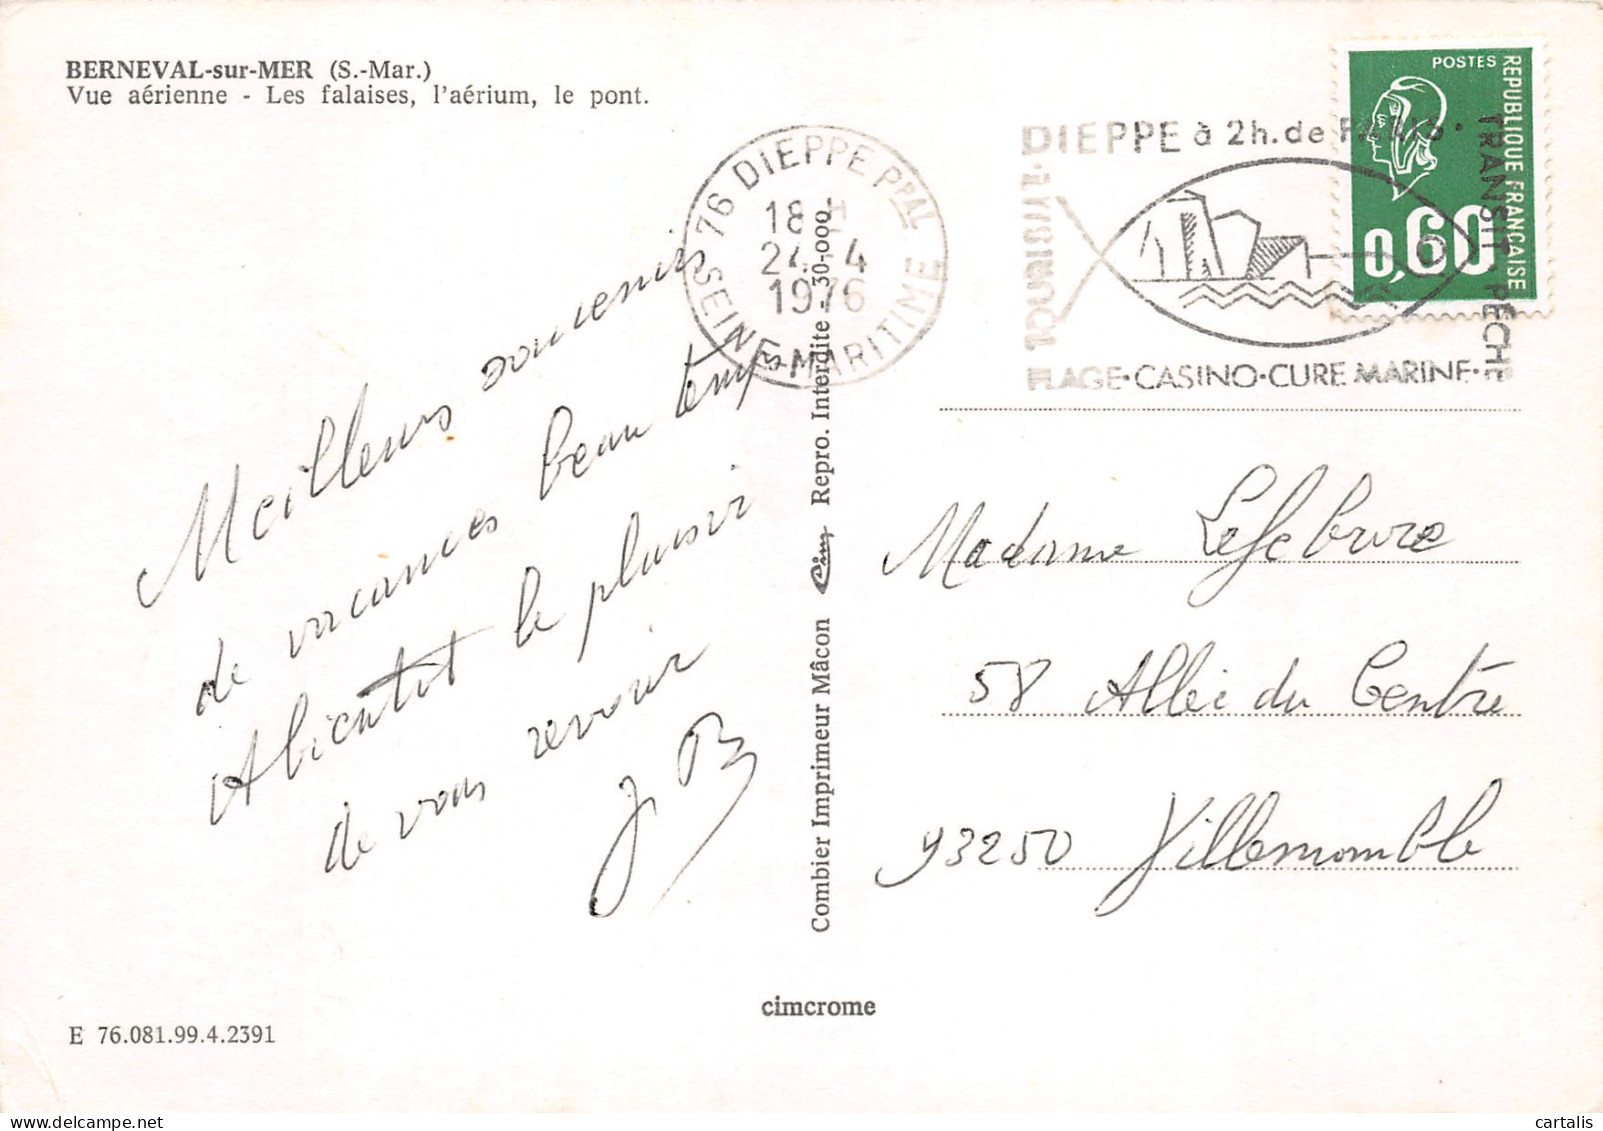 BERNEVAL-sur-MER (S.-Mar.)
Vue aérienne - Les falaises, l'aérium, le pont.
76 DIEPPE PPAL
18 H
24 - 4
1976
SEINE-MARITIME
DIEPPE à 2h. de PARIS ·
TRANSIT · PECHE
PLAGE · CASINO · CURE MARINE ·
POSTES
REPUBLIQUE FRANCAISE
0,60
Meilleurs souvenirs
de vacances beau temps
A bientot le plaisir
de vous revoir
Combier Imprimeur Mâcon Cim Repro. Interdite - 30-000
Madame Lefebvre
58 Allée du Centre
93250 Villemomble
cimcrome
E 76.081.99.4.2391
cartalis
www.delcampe.net